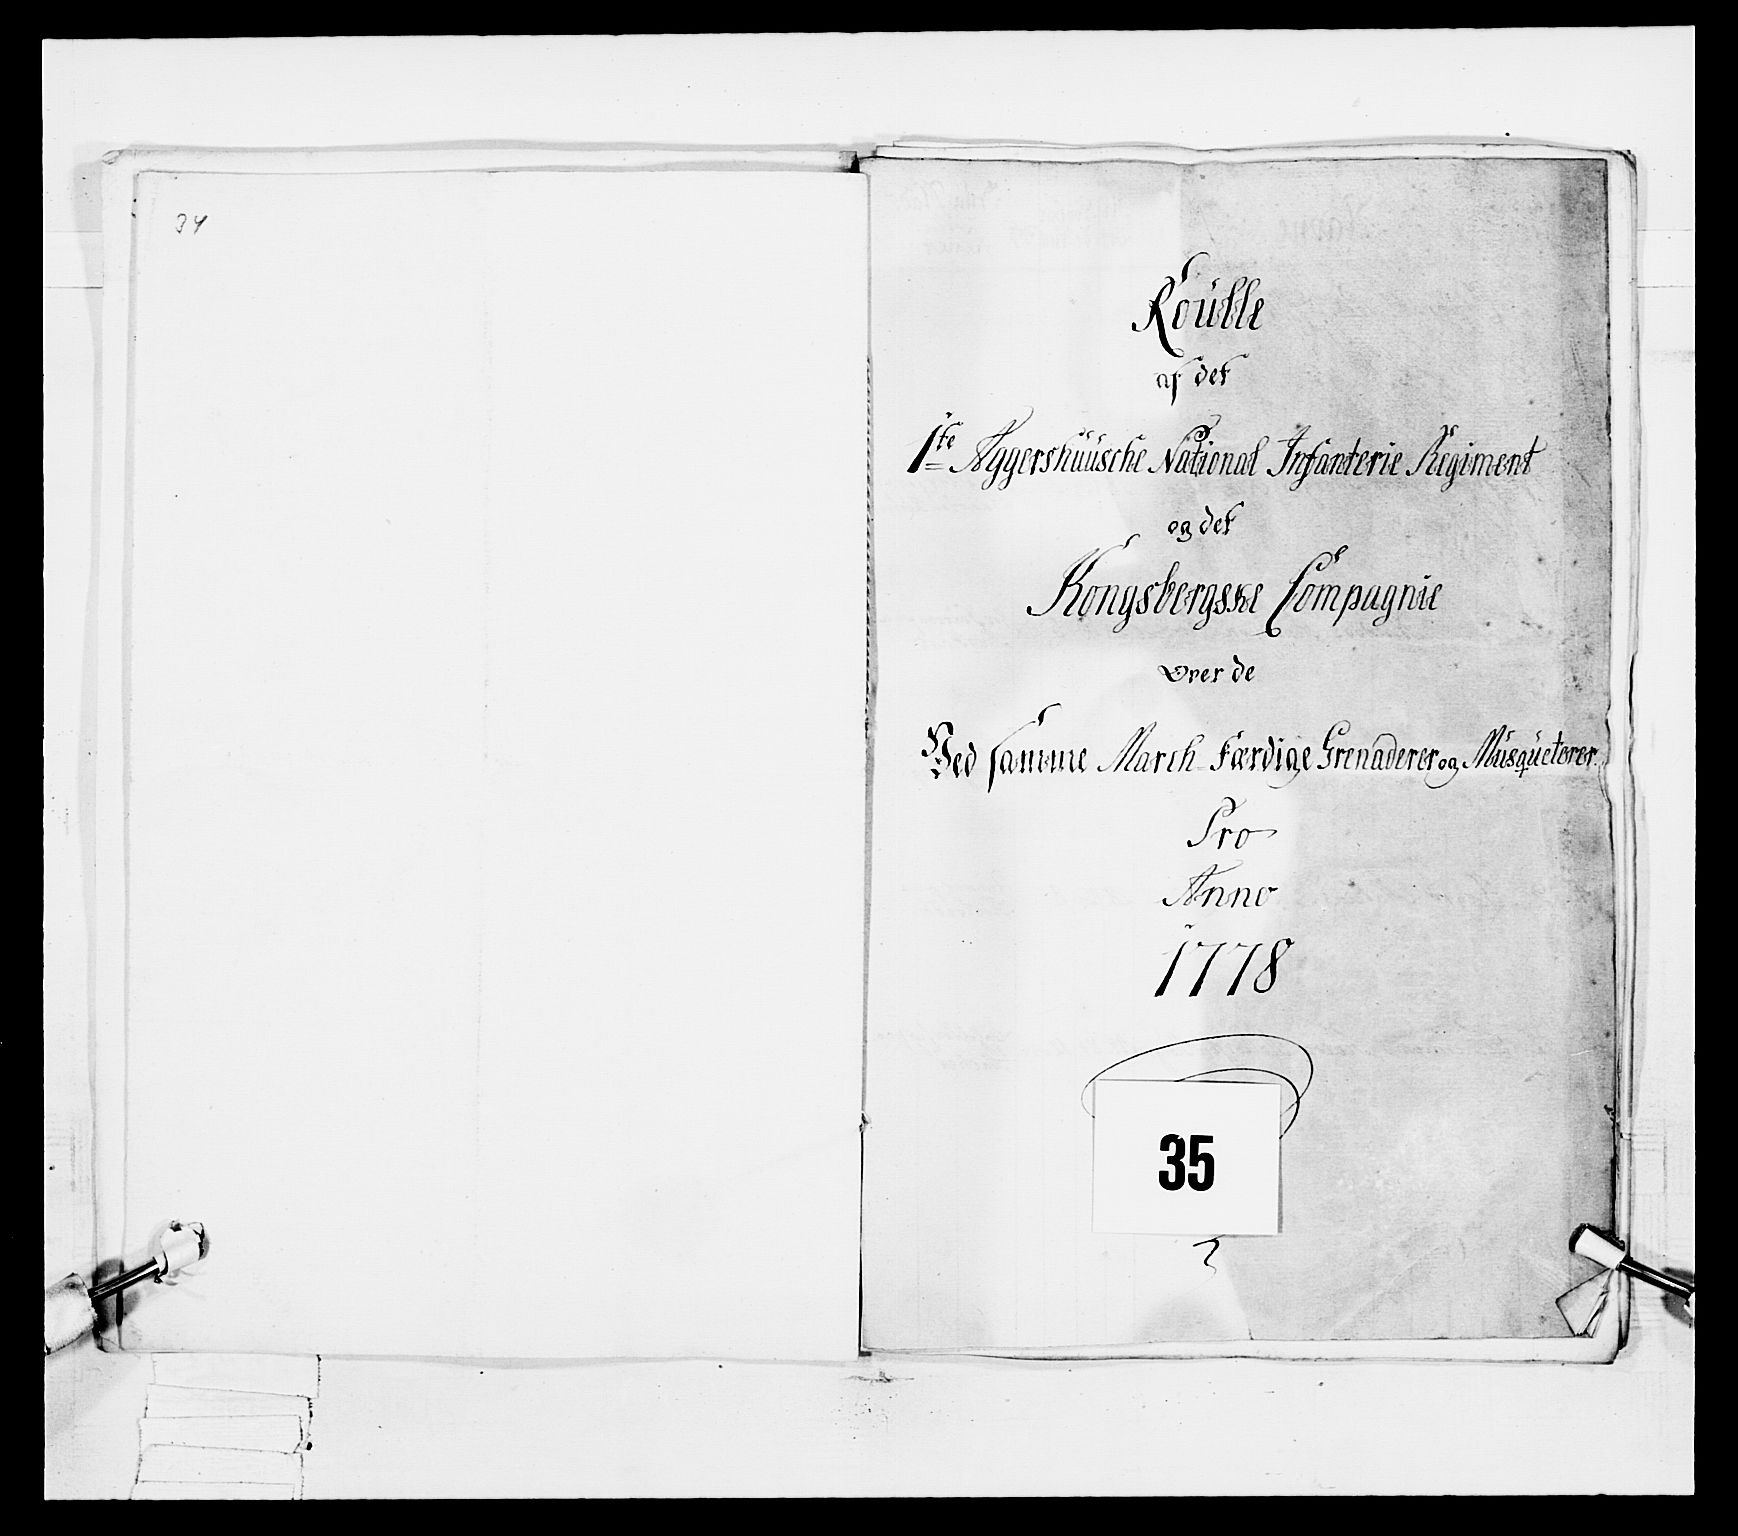 34
Roülle
af det
1te Aggershuüsche National Infanterie Regiment
og det
Kongsbergske Compagnie
Over de
Ved samme March-Færdige Grenaderer og Musqueterer
Pro
Anno
1778
35